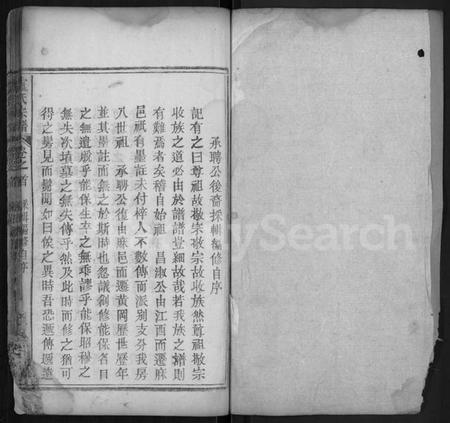 承聘公後裔採輯編修自序
記有之曰尊祖故敬宗敬宗故收族然尊祖敬宗
收族之道必由於譜譜豈細故哉若我族之譜則
有難焉者矣稽自始祖 昌淑公由江西而遷麻
邑祇有墨註未付梓人不數傳而派別支分我房
八世祖 承聘公復由麻邑而遷黃岡歷世歷年
並其墨註而無之於斯時也忽議剏修能保各目
之無遺處乎能保生卒之無乖謬乎能保昭穆之
無失次墳墓之無失傳乎然及此時而修之猶可
得之見而聞如曰俟之異時吾恐遞傳遞遠
氏宗譜
卷首
採輯編修自序
MySearch